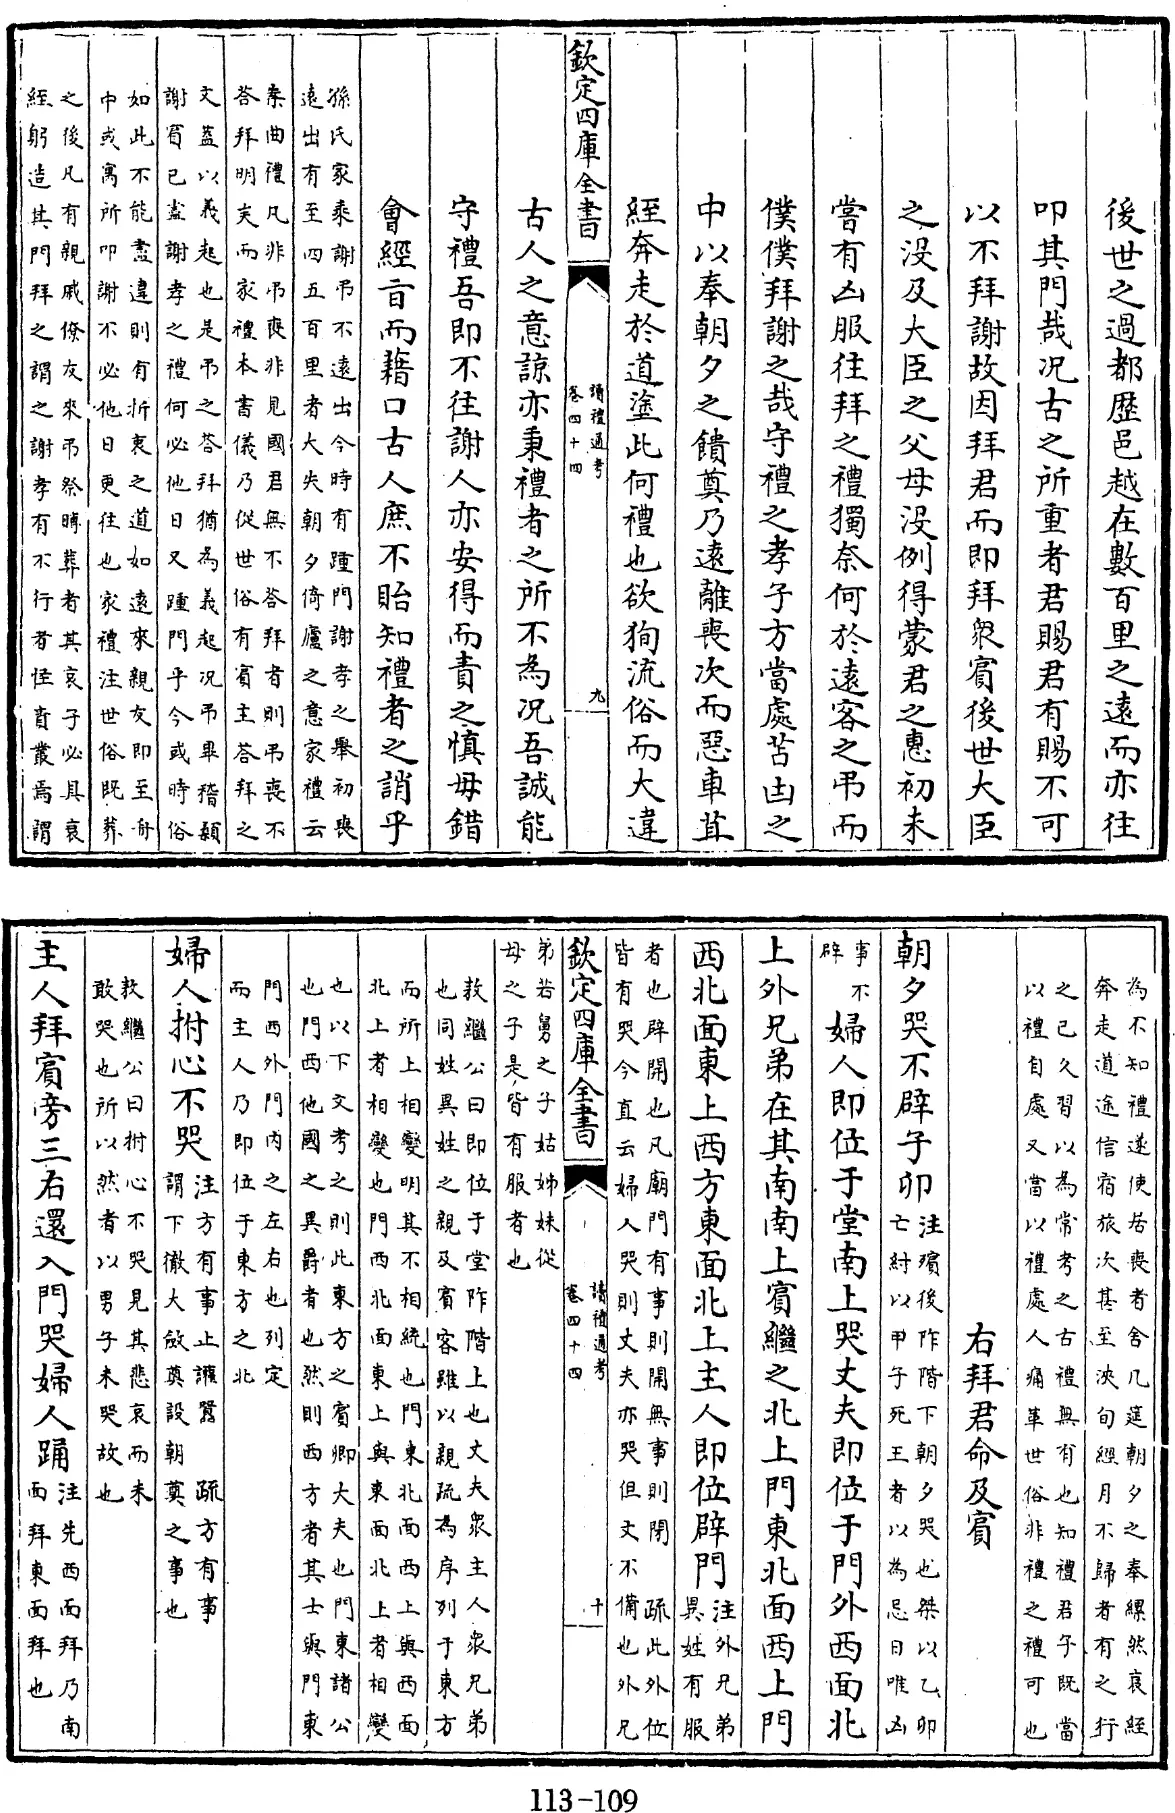 後世之過都歷邑越在數百里之遠而亦往
叩其門哉况古之所重者君賜君有賜不可
以不拜謝故因拜君而即拜衆賔後世大臣
之没及大臣之父母没例得蒙君之惠初未
嘗有凶服往拜之禮獨奈何於逺客之弔而
僕僕拜謝之哉守禮之孝子方當處苫甴之
中以奉朝夕之饋奠乃逺離喪次而惡車苴
絰奔走於道塗此何禮也欲狥流俗而大違
欽定四庫全書
讀禮通考
卷四十四
九
古人之意諒亦秉禮者之所不為况吾誠能
守禮吾即不往謝人亦安得而責之慎毋錯
會經㫖而藉口古人庶不貽知禮者之誚乎
孫氏家乘謝弔不逺出今時有踵門謝孝之舉初喪
逺出有至四五百里者大失朝夕倚廬之意家禮云
柰曲禮凡非弔喪非見國君無不答拜者則弔喪不
答拜明矣而家禮本書儀乃從世俗有賔主答拜之
文葢以義起也是弔之答拜猶為義起况弔畢稽顙
謝賔已盡謝孝之禮何必他日又踵門乎今或時俗
如此不能盡違則有折衷之道如逺來親友即至舟
中或寓所叩謝不必他日更往也家禮注世俗既葬
之後凡有親戚僚友來弔祭賻葬者其哀子必具衰
絰躬造其門拜之謂之謝孝有不行者怪責叢焉謂
為不知禮遂使居喪者舍几筵朝夕之奉縲然衰絰
奔走道途信宿旅次甚至浹旬經月不歸者有之行
之已久習以為常考之古禮無有也知禮君子既當
以禮自處又當以禮處人痛革世俗非禮之禮可也
右拜君命及賔
朝夕哭不辟子卯
注殯後阼階下朝夕哭也桀以乙卯
亡紂以甲子死王者以為忌日唯凶
事不
辟
婦人即位于堂南上哭丈夫即位于門外西面北
上外兄弟在其南南上賔繼之北上門東北面西上門
西北面東上西方東面北上主人即位辟門
注外兄弟
異姓有服
者也辟開也凡廟門有事則開無事則閉 疏此外位
皆有哭今直云婦人哭則丈夫亦哭但文不備也外兄
弟若舅之子姑姊妹從
母之子是皆有服者也
欽定四庫全書
讀禮通考
卷四十四
十
敖繼公曰即位于堂阼階上也丈夫衆主人衆兄弟
也同姓異姓之親及賔客雖以親疏為序列于東方
而所上相變明其不相統也門東北面西上與西面
北上者相變也門西北面東上與東面北上者相變
也以下文考之則此東方之賔卿大夫也門東諸公
也門西他國之異爵者也然則西方者其士與門東
門西外門内之左右也列定
而主人乃即位于東方之北
婦人拊心不哭
注方有事止讙囂 疏方有事
謂下徹大斂奠設朝奠之事也
敖繼公曰拊心不哭見其悲哀而未
敢哭也所以然者以男子未哭故也
主人拜賔旁三右還入門哭婦人踊
注先西面拜乃南
面拜東面拜也
113-109